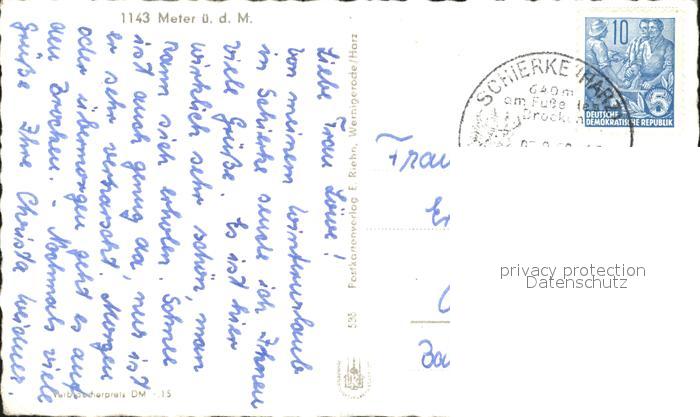 1143 Meter ü. d. M.
Liebe Frau Löwe!
Von meinem Winterurlaub
in Schierke sende ich Ihnen
viele Grüße. Es ist hier
wirklich sehr schön, man
kann sich erholen. Schnee
ist auch genug da, nur ist
er sehr verharscht. Morgen
oder übermorgen geht es auf
den Brocken. - Nochmals viele
Grüße Ihre Christa Weidner.
Verbraucherpreis DM -.15
538 Postkartenverlag E. Riehn, Wernigerode/Harz
SCHIERKE (HARZ)
640 m
am Fuße des
Brocken
10
5
DEUTSCHE
DEMOKRATISCHE REPUBLIK
Frau
privacy protection
Datenschutz